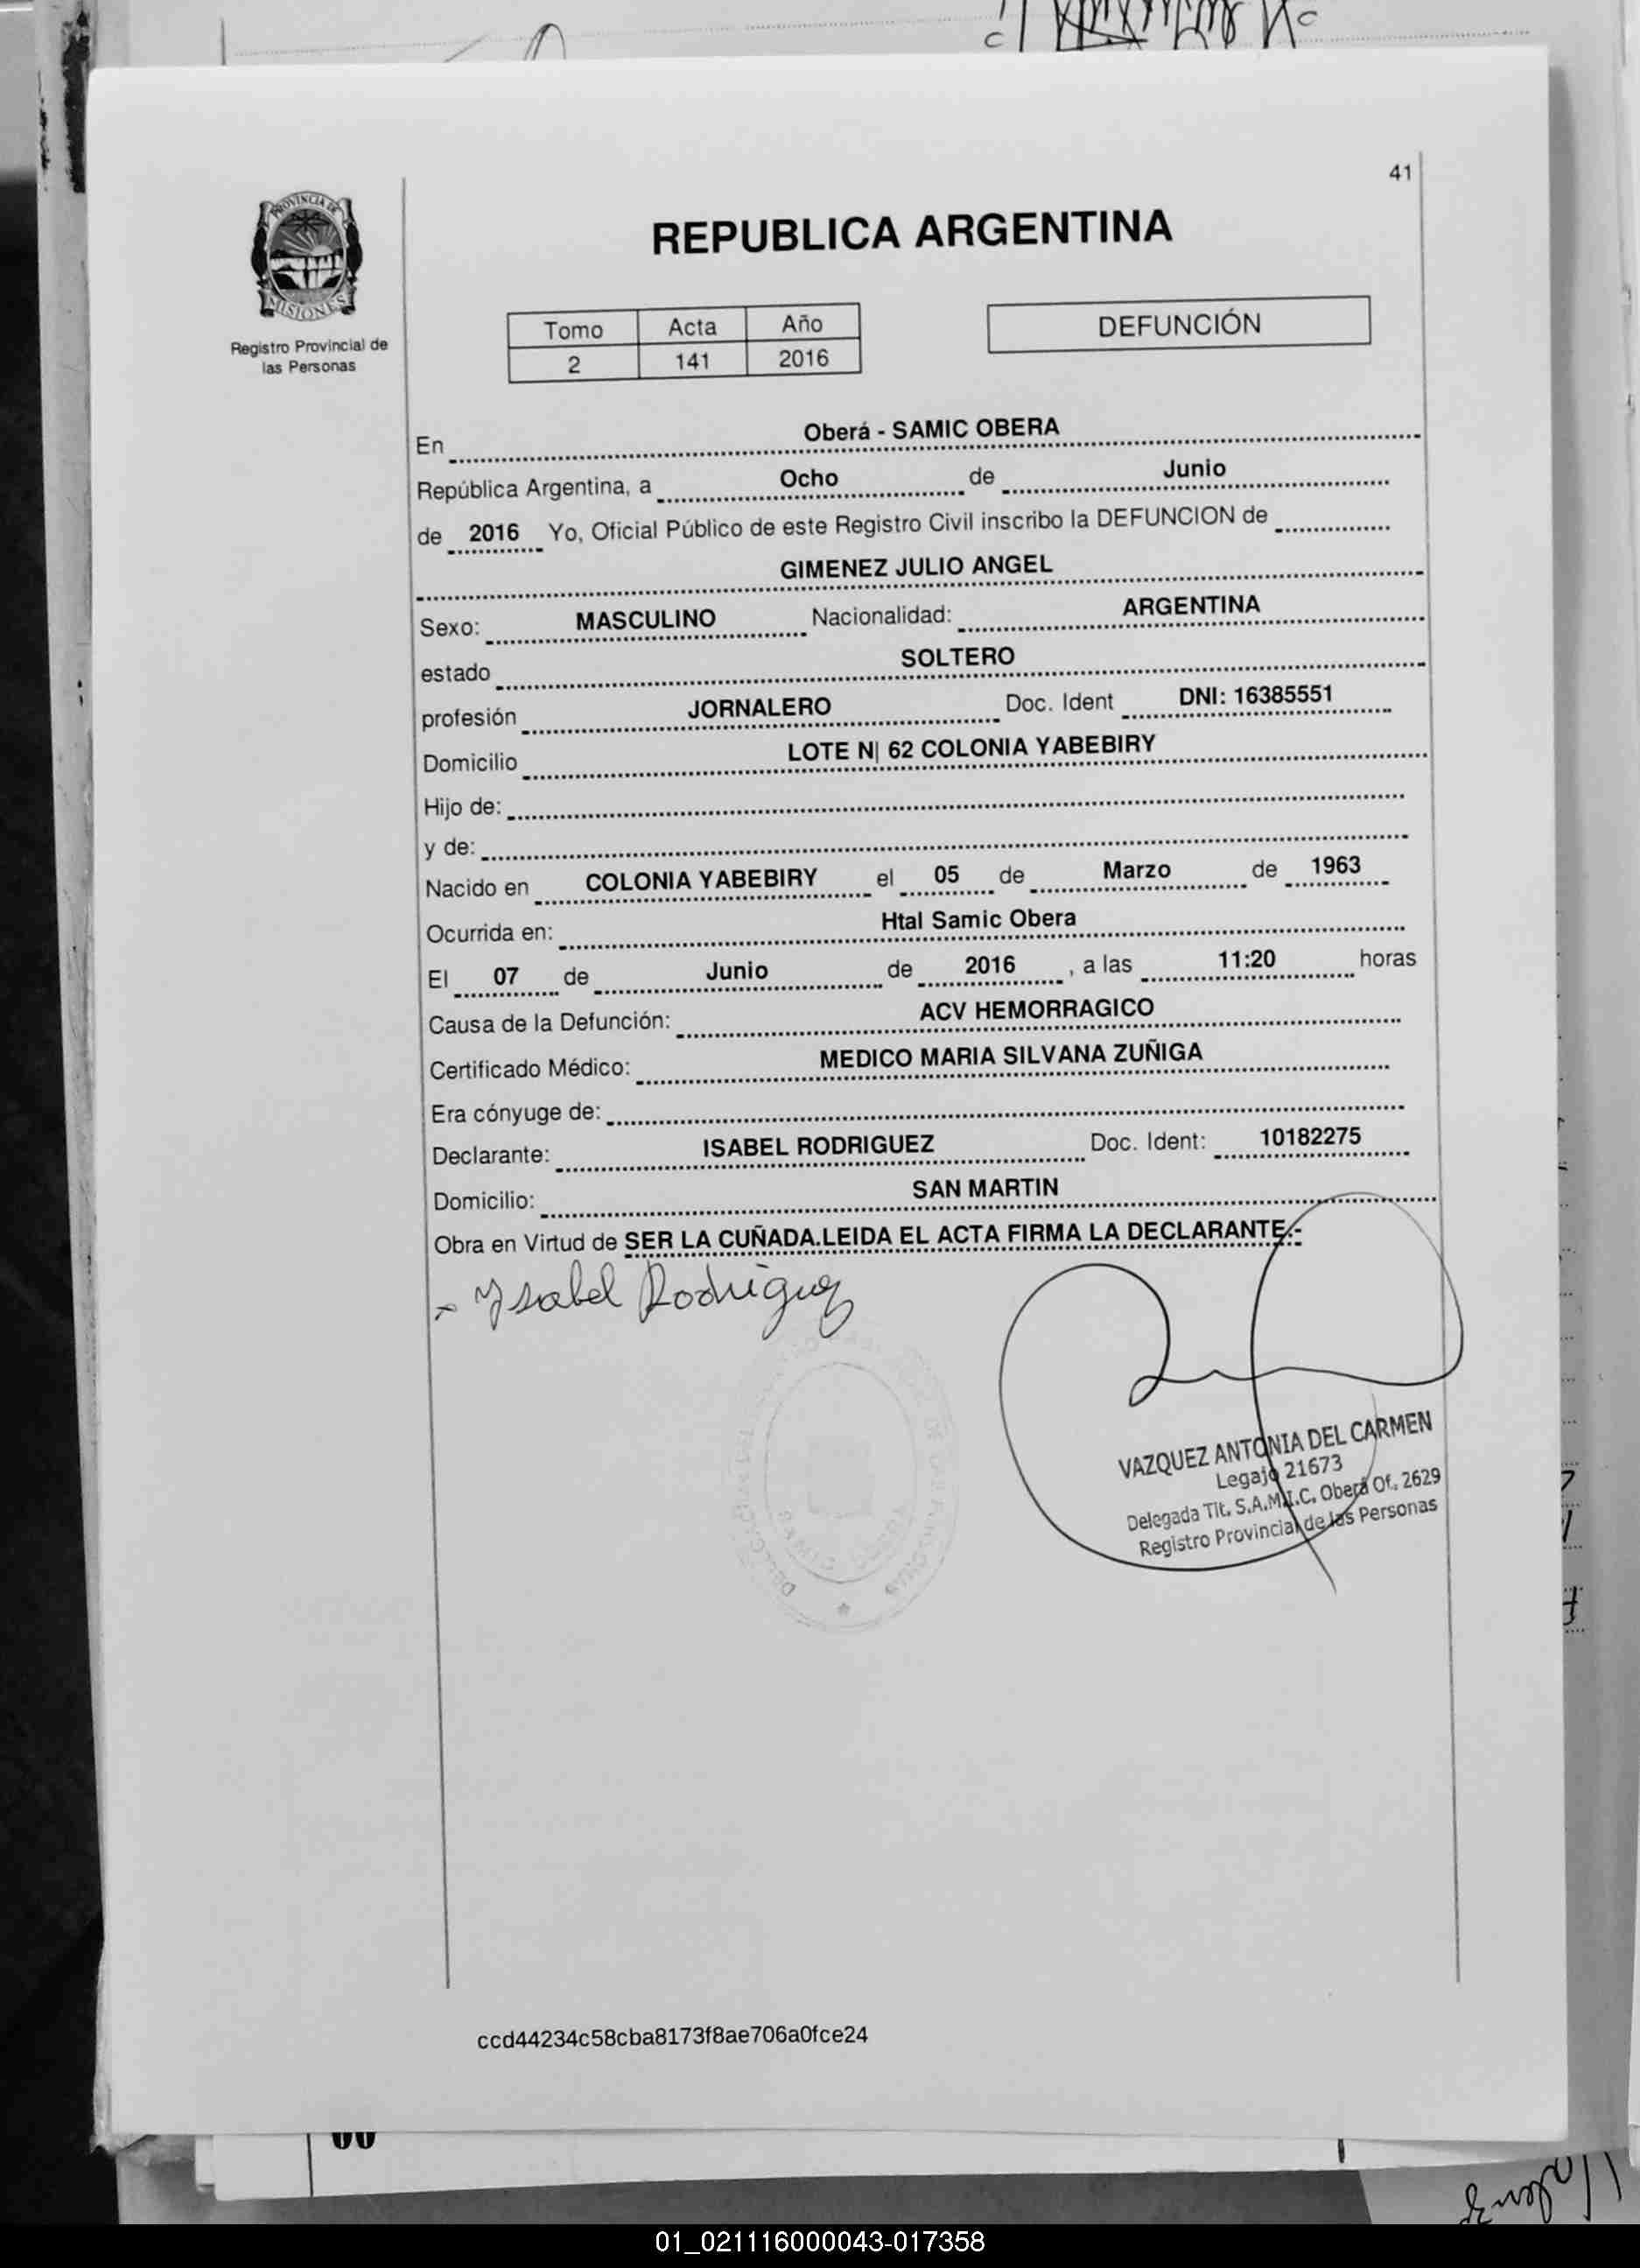 41
PROVINCIA DE
MISIONES
Registro Provincial de
las Personas
REPUBLICA ARGENTINA
Tomo Acta Año
2 141 2016
DEFUNCIÓN
En Oberá - SAMIC OBERA
República Argentina, a Ocho de Junio
de 2016 Yo, Oficial Público de este Registro Civil inscribo la DEFUNCION de
GIMENEZ JULIO ANGEL
Sexo: MASCULINO Nacionalidad: ARGENTINA
estado SOLTERO
profesión JORNALERO Doc. Ident DNI: 16385551
Domicilio LOTE N| 62 COLONIA YABEBIRY
Hijo de:
y de:
Nacido en COLONIA YABEBIRY el 05 de Marzo de 1963
Ocurrida en: Htal Samic Obera
El 07 de Junio de 2016 , a las 11:20 horas
Causa de la Defunción: ACV HEMORRAGICO
Certificado Médico: MEDICO MARIA SILVANA ZUÑIGA
Era cónyuge de:
Declarante: ISABEL RODRIGUEZ Doc. Ident: 10182275
Domicilio: SAN MARTIN
Obra en Virtud de SER LA CUÑADA.LEIDA EL ACTA FIRMA LA DECLARANTE.-
Ysabel Rodriguez
VAZQUEZ ANTONIA DEL CARMEN
Legajo 21673
Delegada Tit. S.A.M.I.C. Oberá Of. 2629
Registro Provincial de las Personas
ccd44234c58cba8173f8ae706a0fce24
01_021116000043-017358